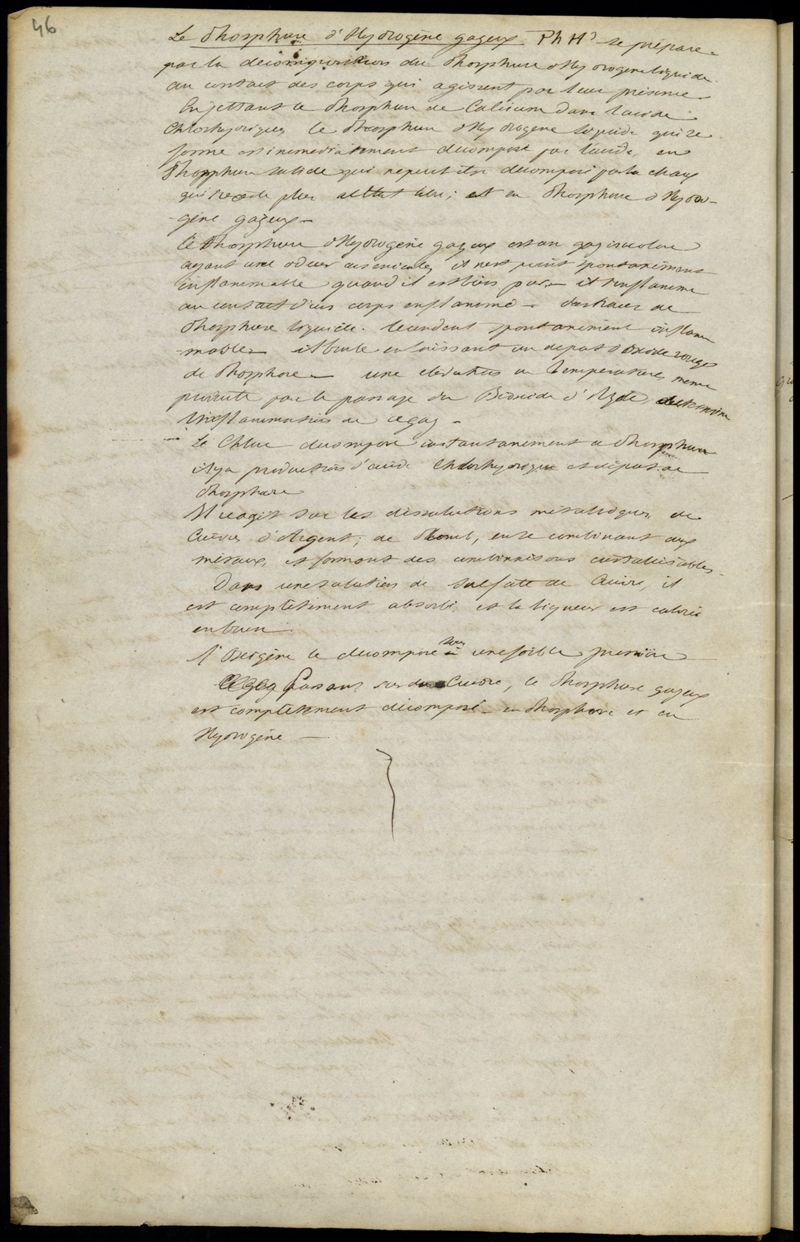 46
Le Phosphure d'Hydrogène gazeux Ph H³ se prépare
par la décomposition du Phosphure d'Hydrogène liquide
au contact des corps qui agissent par leur présence
En jettant le Phosphure de Calcium dans l'acide
Chlorhydrique, le Phosphure d'Hydrogène liquide qui se
forme est immédiatement décomposé par l'acide, en
Phosphure solide qui n'epeut être décomposé par la chaux
qui n'existe plus à l'état libre; et en Phosphure d'Hydro-
-gène gazeux-
Le Phosphure d'Hydrogène gazeux est un gaz incolore
ayant une odeur arsenicale, il n'est point spontanément
inflammable quand il est bien pur - il s'enflamme
au contact d'un corps enflammé - des traces de
Phosphure liquide le rendent spontanément inflam
mable - il brule en laissant un dépot d'oxide rouge
de Phosphore - une élévation de Température, même
produite par le passage du Bioxide d'Azote
l'inflammation de ce gaz -
Le Chlore décompose instantanément le Phosphure
il y a production d'acide Chlorhydrique et dépot de
Phosphore
Il réagit sur les dissolutions métalliques, de
Cuivre, d'Argent, de Plomb, en se combinant aux
métaux, et formant des combinaisons cristallisables.
Dans une solution de sulfate de Cuivre, il
est complètement absorbé, et la liqueur est colorée
en brun
l'Oxigène le décompose sous à une faible pression
passant sur du Cuivre, le Phosphure gazeux
est complètement décomposé - en Phosphore et en
Hydrogène -